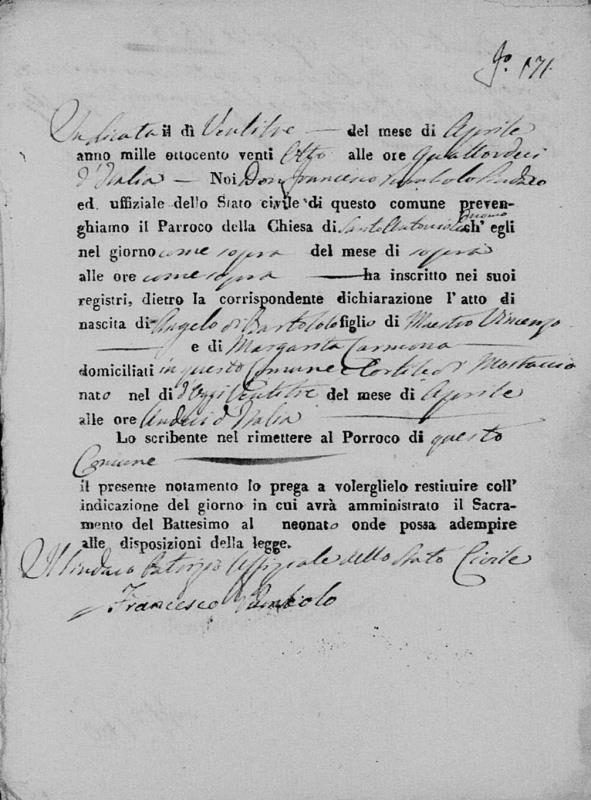 Nº. 171.
Indicata il dì Ventitre del mese di Aprile
anno mille ottocento venti Otto alle ore Quattordeci
d'Italia — Noi Don Francesco
ed uffiziale dello Stato civile di questo comune preven-
ghiamo il Parroco della Chiesa di Sant'Antonio Duomo ch' egli
nel giorno come sopra del mese di sopra
alle ore come sopra — ha inscritto nei suoi
registri, dietro la corrispondente dichiarazione l'atto di
nascita di Angelo di Bartolo figlio di Maestro Vincenzo
— e di Margarita Carmona
domiciliati in questo Comune Cortile
nato nel di d'Oggi Ventitre del mese di Aprile
alle ore Undeci d'Italia —
Lo scribente nel rimettere al Porroco di questo
Comune —
il presente notamento lo prega a volerglielo restituire coll'
indicazione del giorno in cui avrà amministrato il Sacra-
mento del Battesimo al neonato onde possa adempire
alle disposizioni della legge.
Il Sindaco Patrizio Uffiziale dello Stato Civile
Francesco